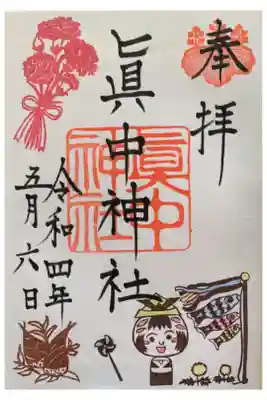 奉拝
眞中神社
眞中
神社
令和四年
五月六日